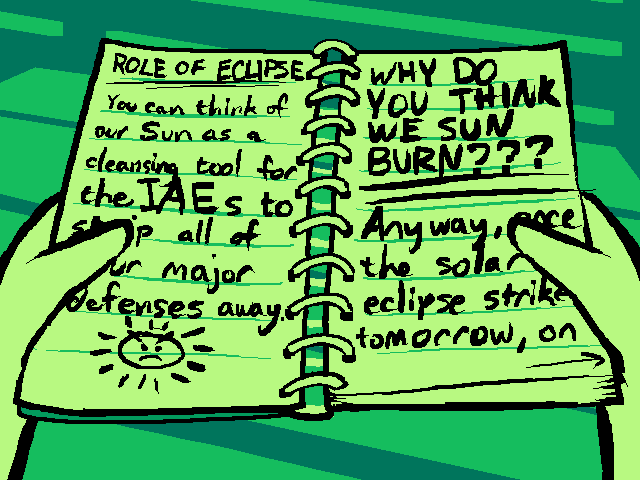 ROLE OF ECLIPSE
You can think of
our Sun as a
cleansing tool for
the IAEs to
strip all of
our major
defenses away.
WHY DO
YOU THINK
WE SUN
BURN???
Anyway, once
the solar
eclipse strikes
tomorrow, on